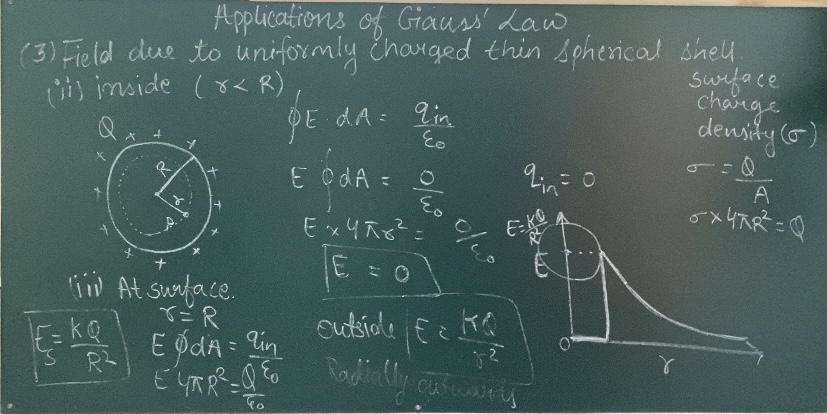 Applications of Gauss' Law
(3) Field due to uniformly charged thin spherical shell.
(ii) inside (r < R)
Q
R
r
P
∮E · dA = qin/ε0
E ∮dA = 0/ε0
E × 4πr² = 0/ε0
E = 0
qin = 0
surface
charge
density (σ)
σ = Q/A
σ × 4πR² = Q
(iii) At surface.
r = R
E ∮dA = qin/ε0
E 4πR² = Q/ε0
Es = kQ/R²
outside E = kQ/r²
Radially outwards
E = kQ/R²
E
0
r